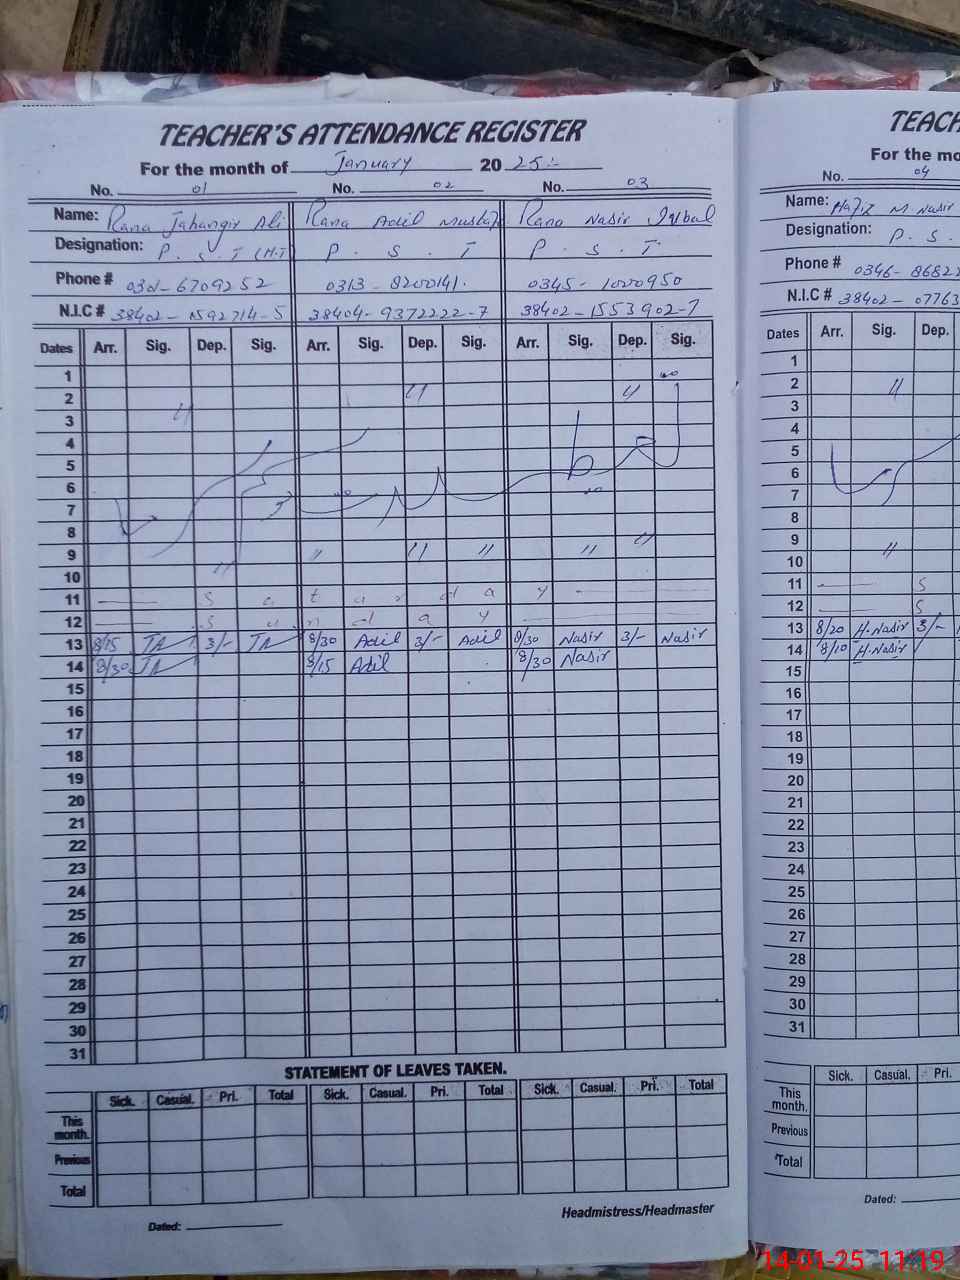 TEACHER'S ATTENDANCE REGISTER
For the month of January 20 25
No. 01 No. 02 No. 03
Name: Rana Jahangir Ali Rana Adil Mustafa Rana Nasir Iqbal
Designation: P. S. T (H.T) P. S. T P. S. T.
Phone # 0301-6709252 0313-8200141. 0345-1000950
N.I.C # 38402-1592714-5 38404-9372222-7 38402-1553902-7
Dates Arr. Sig. Dep. Sig. Arr. Sig. Dep. Sig. Arr. Sig. Dep. Sig.
1
2 " "
3 "
4
5
6
7
8
9 " " " " "
10 "
11 S a t u r d a y
12 S u n d a y
13 8/15 JA 3/- JA 8/30 Adil 3/- Adil 8/30 Nasir 3/- Nasir
14 8/30 JA 8/15 Adil 8/30 Nasir
15
16
17
18
19
20
21
22
23
24
25
26
27
28
29
30
31
STATEMENT OF LEAVES TAKEN.
Sick. Casual. Pri. Total Sick. Casual. Pri. Total Sick. Casual. Pri. Total
This month.
Previous
Total
Dated: Headmistress/Headmaster
TEACH
For the mo
No. 04
Name: Hafiz M. Nasir
Designation: P. S.
Phone # 0346-8682
N.I.C # 38402-07763
Dates Arr. Sig. Dep.
1
2 "
3
4
5
6
7
8
9
10 "
11 S
12 S
13 8/20 H.Nasir 3/-
14 8/10 H.Nasir
15
16
17
18
19
20
21
22
23
24
25
26
27
28
29
30
31
Sick. Casual. Pri.
This month.
Previous
Total
Dated:
14-01-25 11:19